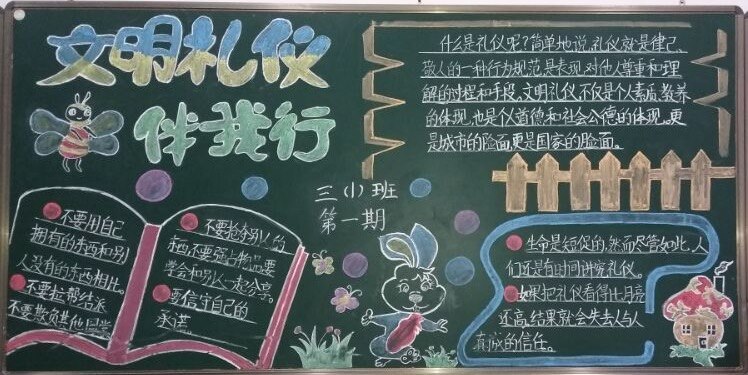 文明礼仪
伴我行
什么是礼仪呢?简单地说,礼仪就是律己、
敬人的一种行为规范,是表现对他人尊重和理
解的过程和手段。文明礼仪,不仅是个人素质、教养
的体现,也是个人道德和社会公德的体现。更
是城市的脸面,更是国家的脸面。
三(1)班
第一期
不要用自己
拥有的东西和别
人没有的东西相比。
不要拉帮结派
不要欺负其他同学
不要抢夺别人的
东西,不要强占物品,要
学会和别人一起分享。
要信守自己的
承诺
生命是短促的,然而尽管如此,人
们还是有时间讲究礼仪。
如果把礼仪看得比月亮
还高,结果就会失去人与人
真诚的信任。